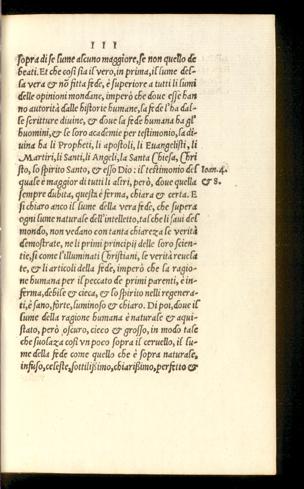 III
sopra di se lume alcuno maggiore, se non quello de
beati. Et che così sia il vero, in prima, il lume del-
la vera & nõ fitta fede, è superiore a tutti li lumi
delle opinioni mondane, imperò che doue esse han
no autorità dalle historie humane, la fede l'ha dal-
le scritture diuine, & doue la fede humana ha gl'
huomini, & le loro academie per testimonio, la di-
uina ha li Propheti, li apostoli, li Euangelisti, li
Martiri, li Santi, li Angeli, la Santa Chiesa, Chri
sto, lo spirito Santo, & esso Dio: il testimonio del Ioan. 4.
quale è maggior di tutti li altri, però, doue quella & 8.
sempre dubita, questa è ferma, chiara & certa. E
si chiaro anco il lume della vera fede, che supera
ogni lume naturale dell'intelletto, tal che li saui del
mondo, non vedano con tanta chiarezza le verità
demostrate, ne li primi principij delle loro scien-
tie, si come l'illuminati Christiani, le verità reuela
te, & li articoli della fede, imperò che la ragio-
ne humana per il peccato de primi parenti, è in-
ferma, debile & cieca, & lo spirito nelli regenera-
ti, è sano, forte, luminoso & chiaro. Di poi, doue il
lume della ragione humana è naturale & aqui-
stato, però oscuro, cieco & grosso, in modo tale
che suolaza così vn poco sopra il ceruello, il lu-
me della fede come quello che è sopra naturale,
infuso, celeste, sottilißimo, chiarißimo, perfetto &